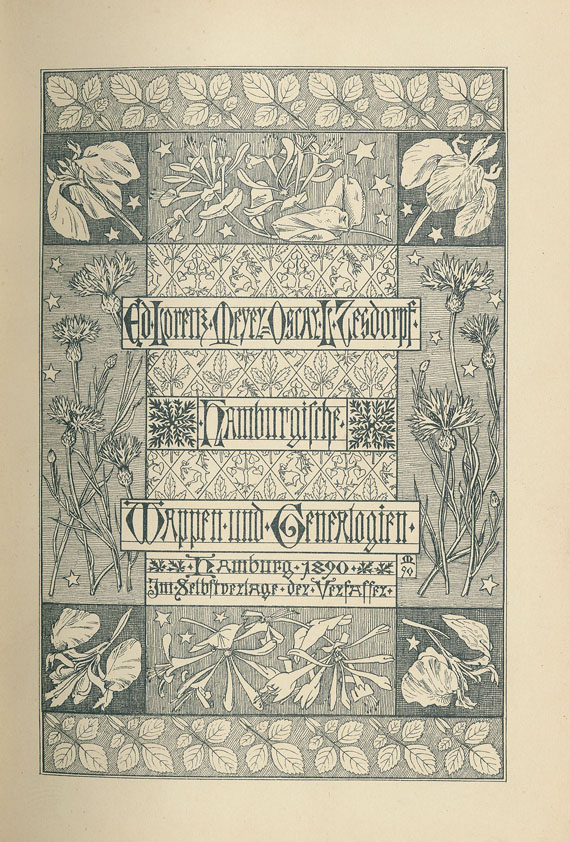 Ed·Lorenz·Meyer=Oscar·L·Tesdorpf·
Hamburgische·
Wappen·und·Genealogien·
Hamburg·1890·
M 90
Im·Selbstverlage·der·Verfasser·